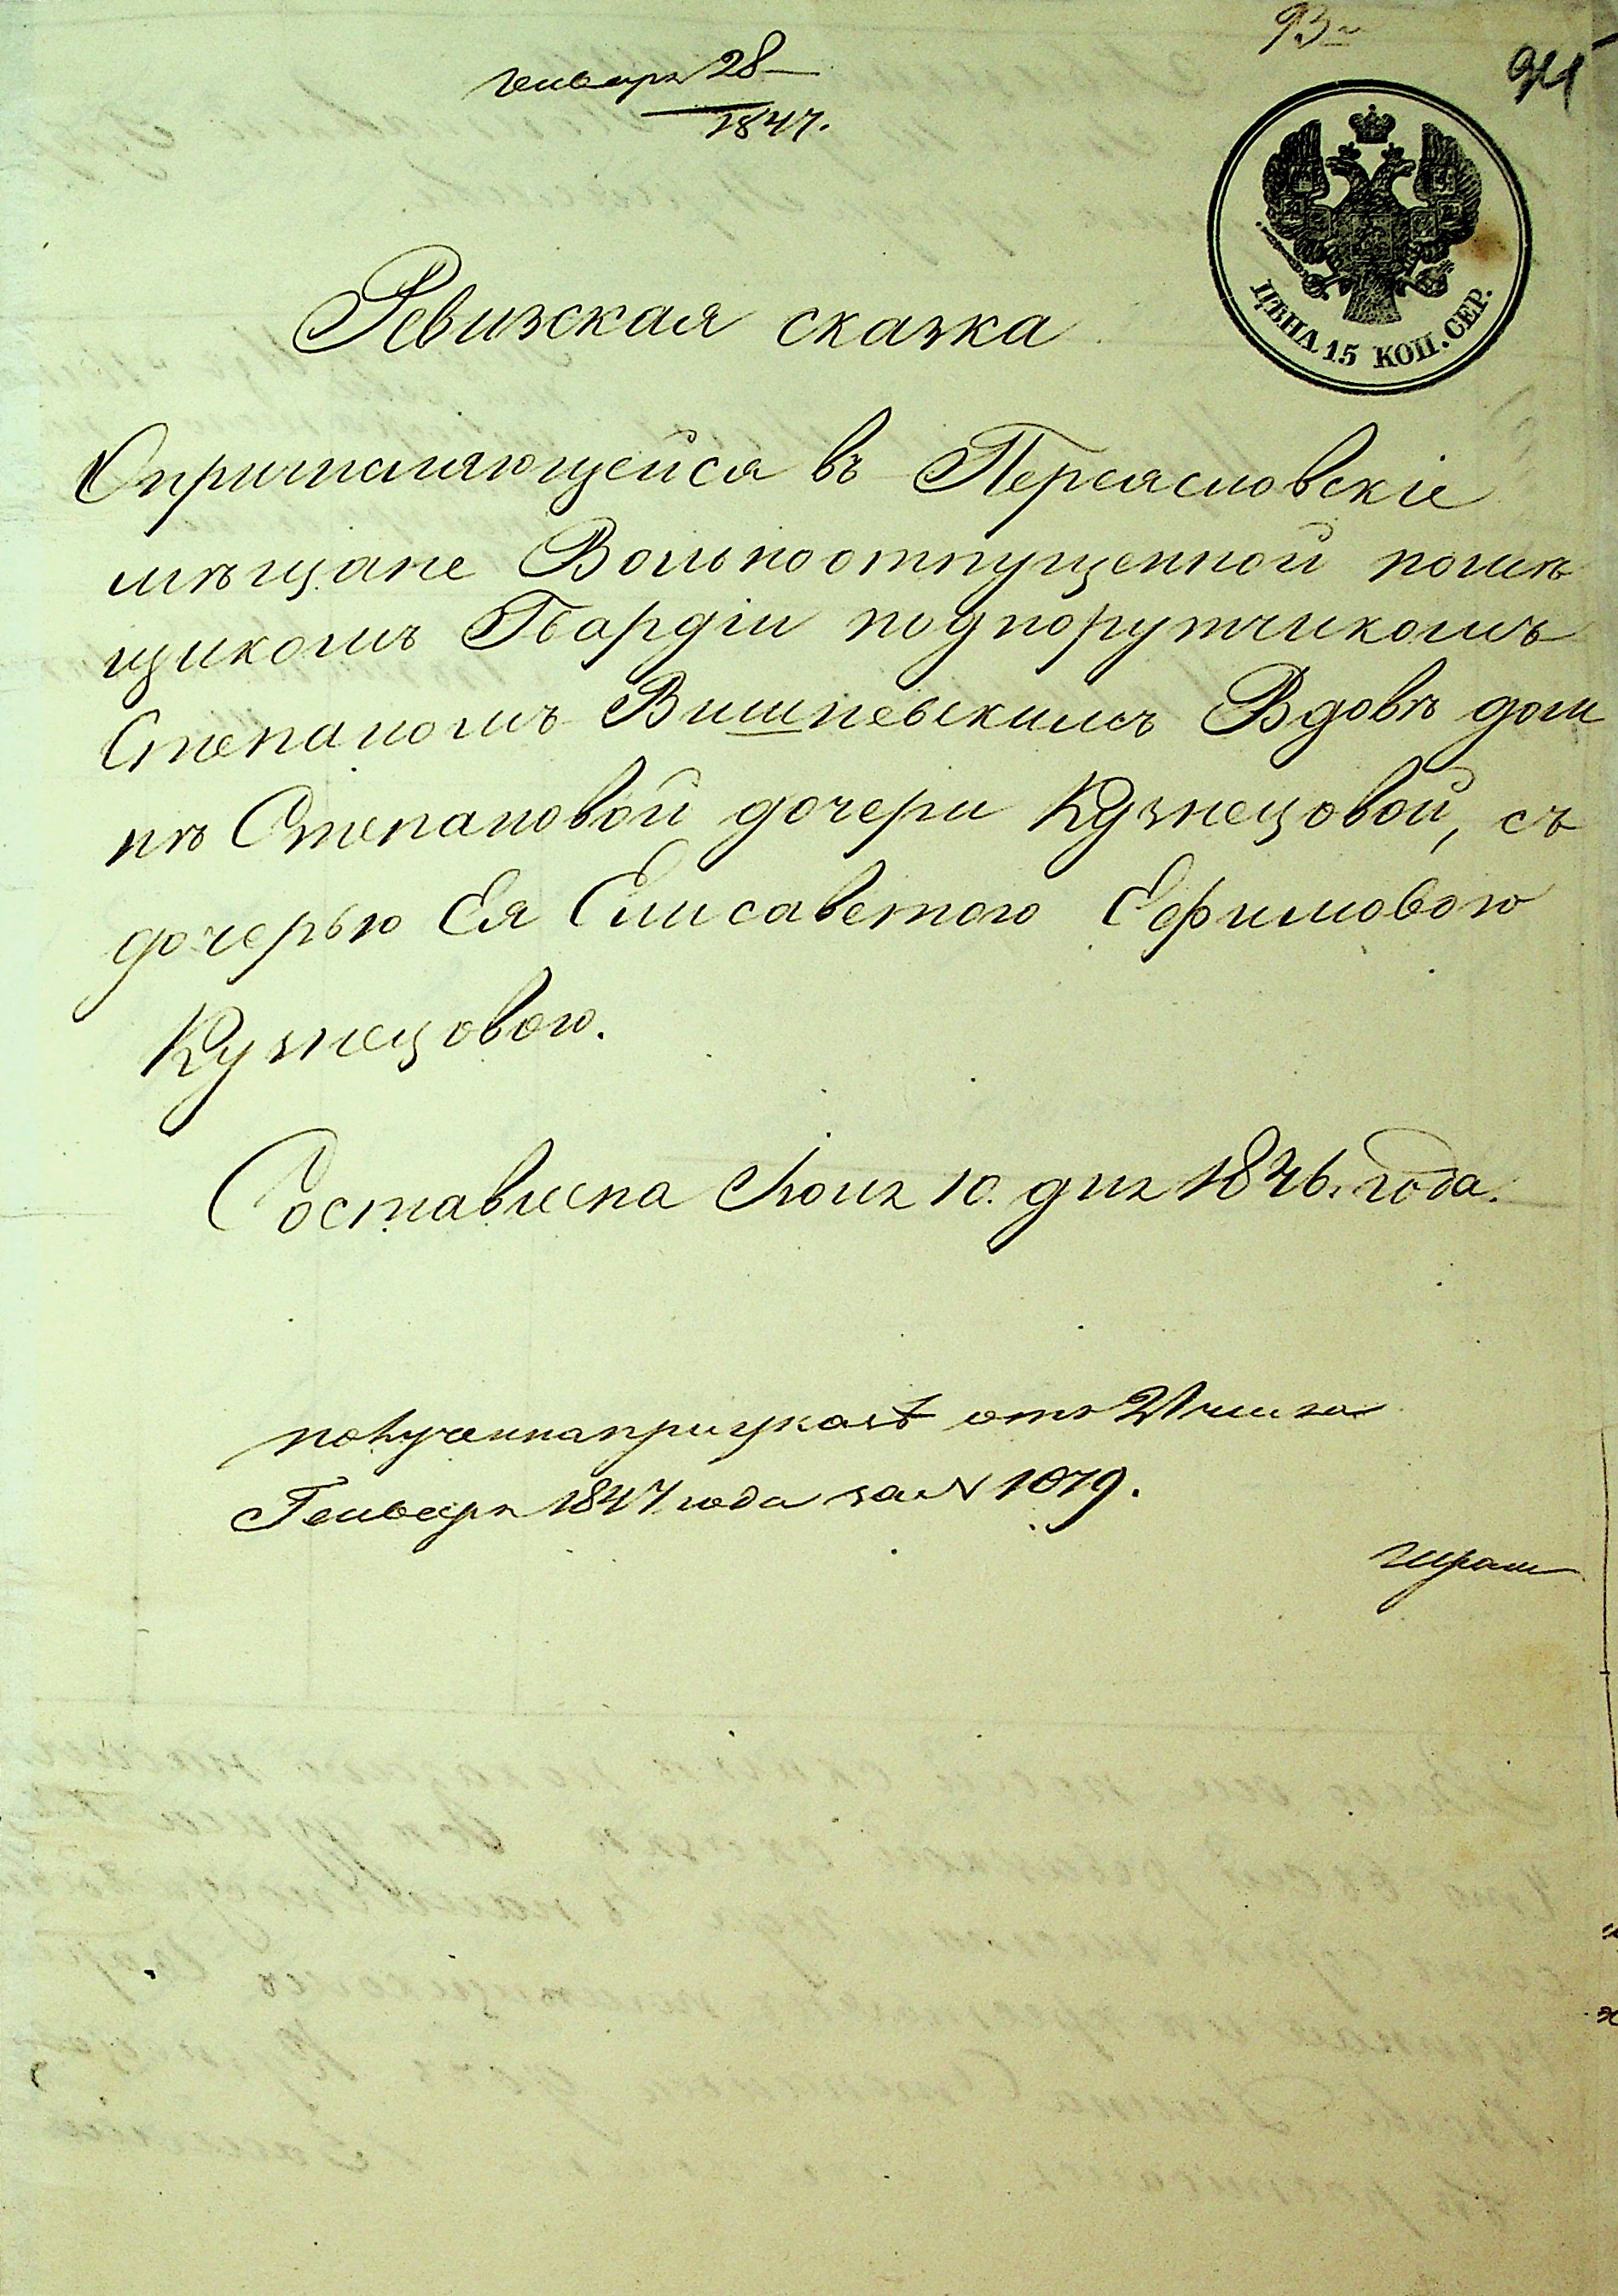 93
94
Генваря 28
1847.
ЦѢНА 15 КОП. СЕР.
Ревизская сказка
О причисляющейся въ Переясловскіе
мѣщане Вольноотпущенной помѣ
щикомъ Гвардіи подпорутчикомъ
Степаномъ Вишневскимъ Вдовѣ дом
нѣ Степановой дочери Кузнецовой, съ
дочерью Ея Елисаветою Ефимовою
Кузнецовою.
Составлена Іюня 10. дня 1846. года.
получена при указѣ отъ 21 числа
Генваря 1847 года за № 1079.